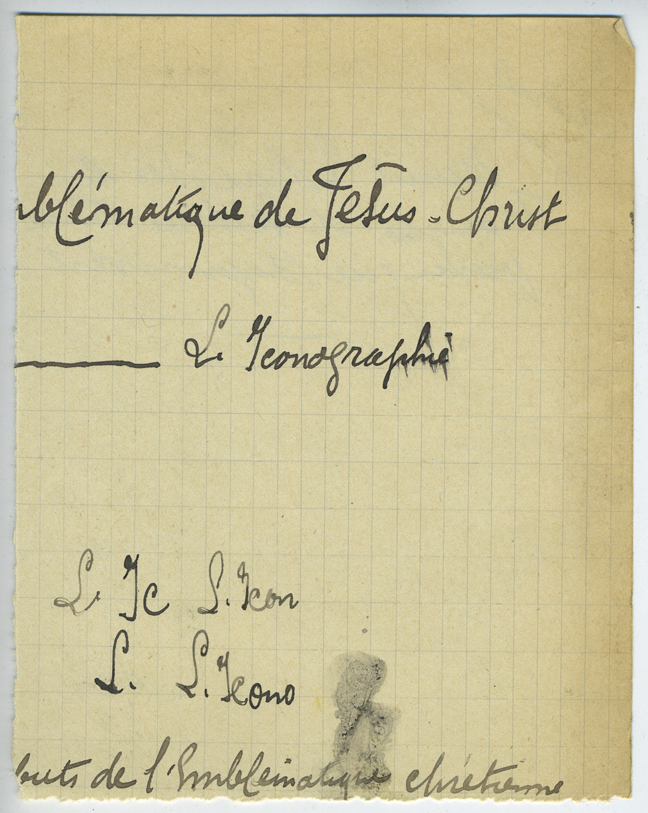 mblématique de Jésus-Christ
L. Iconographie
L. Ic L. Icon
L. L. Icono
buts de l'Emblématique chrétienne